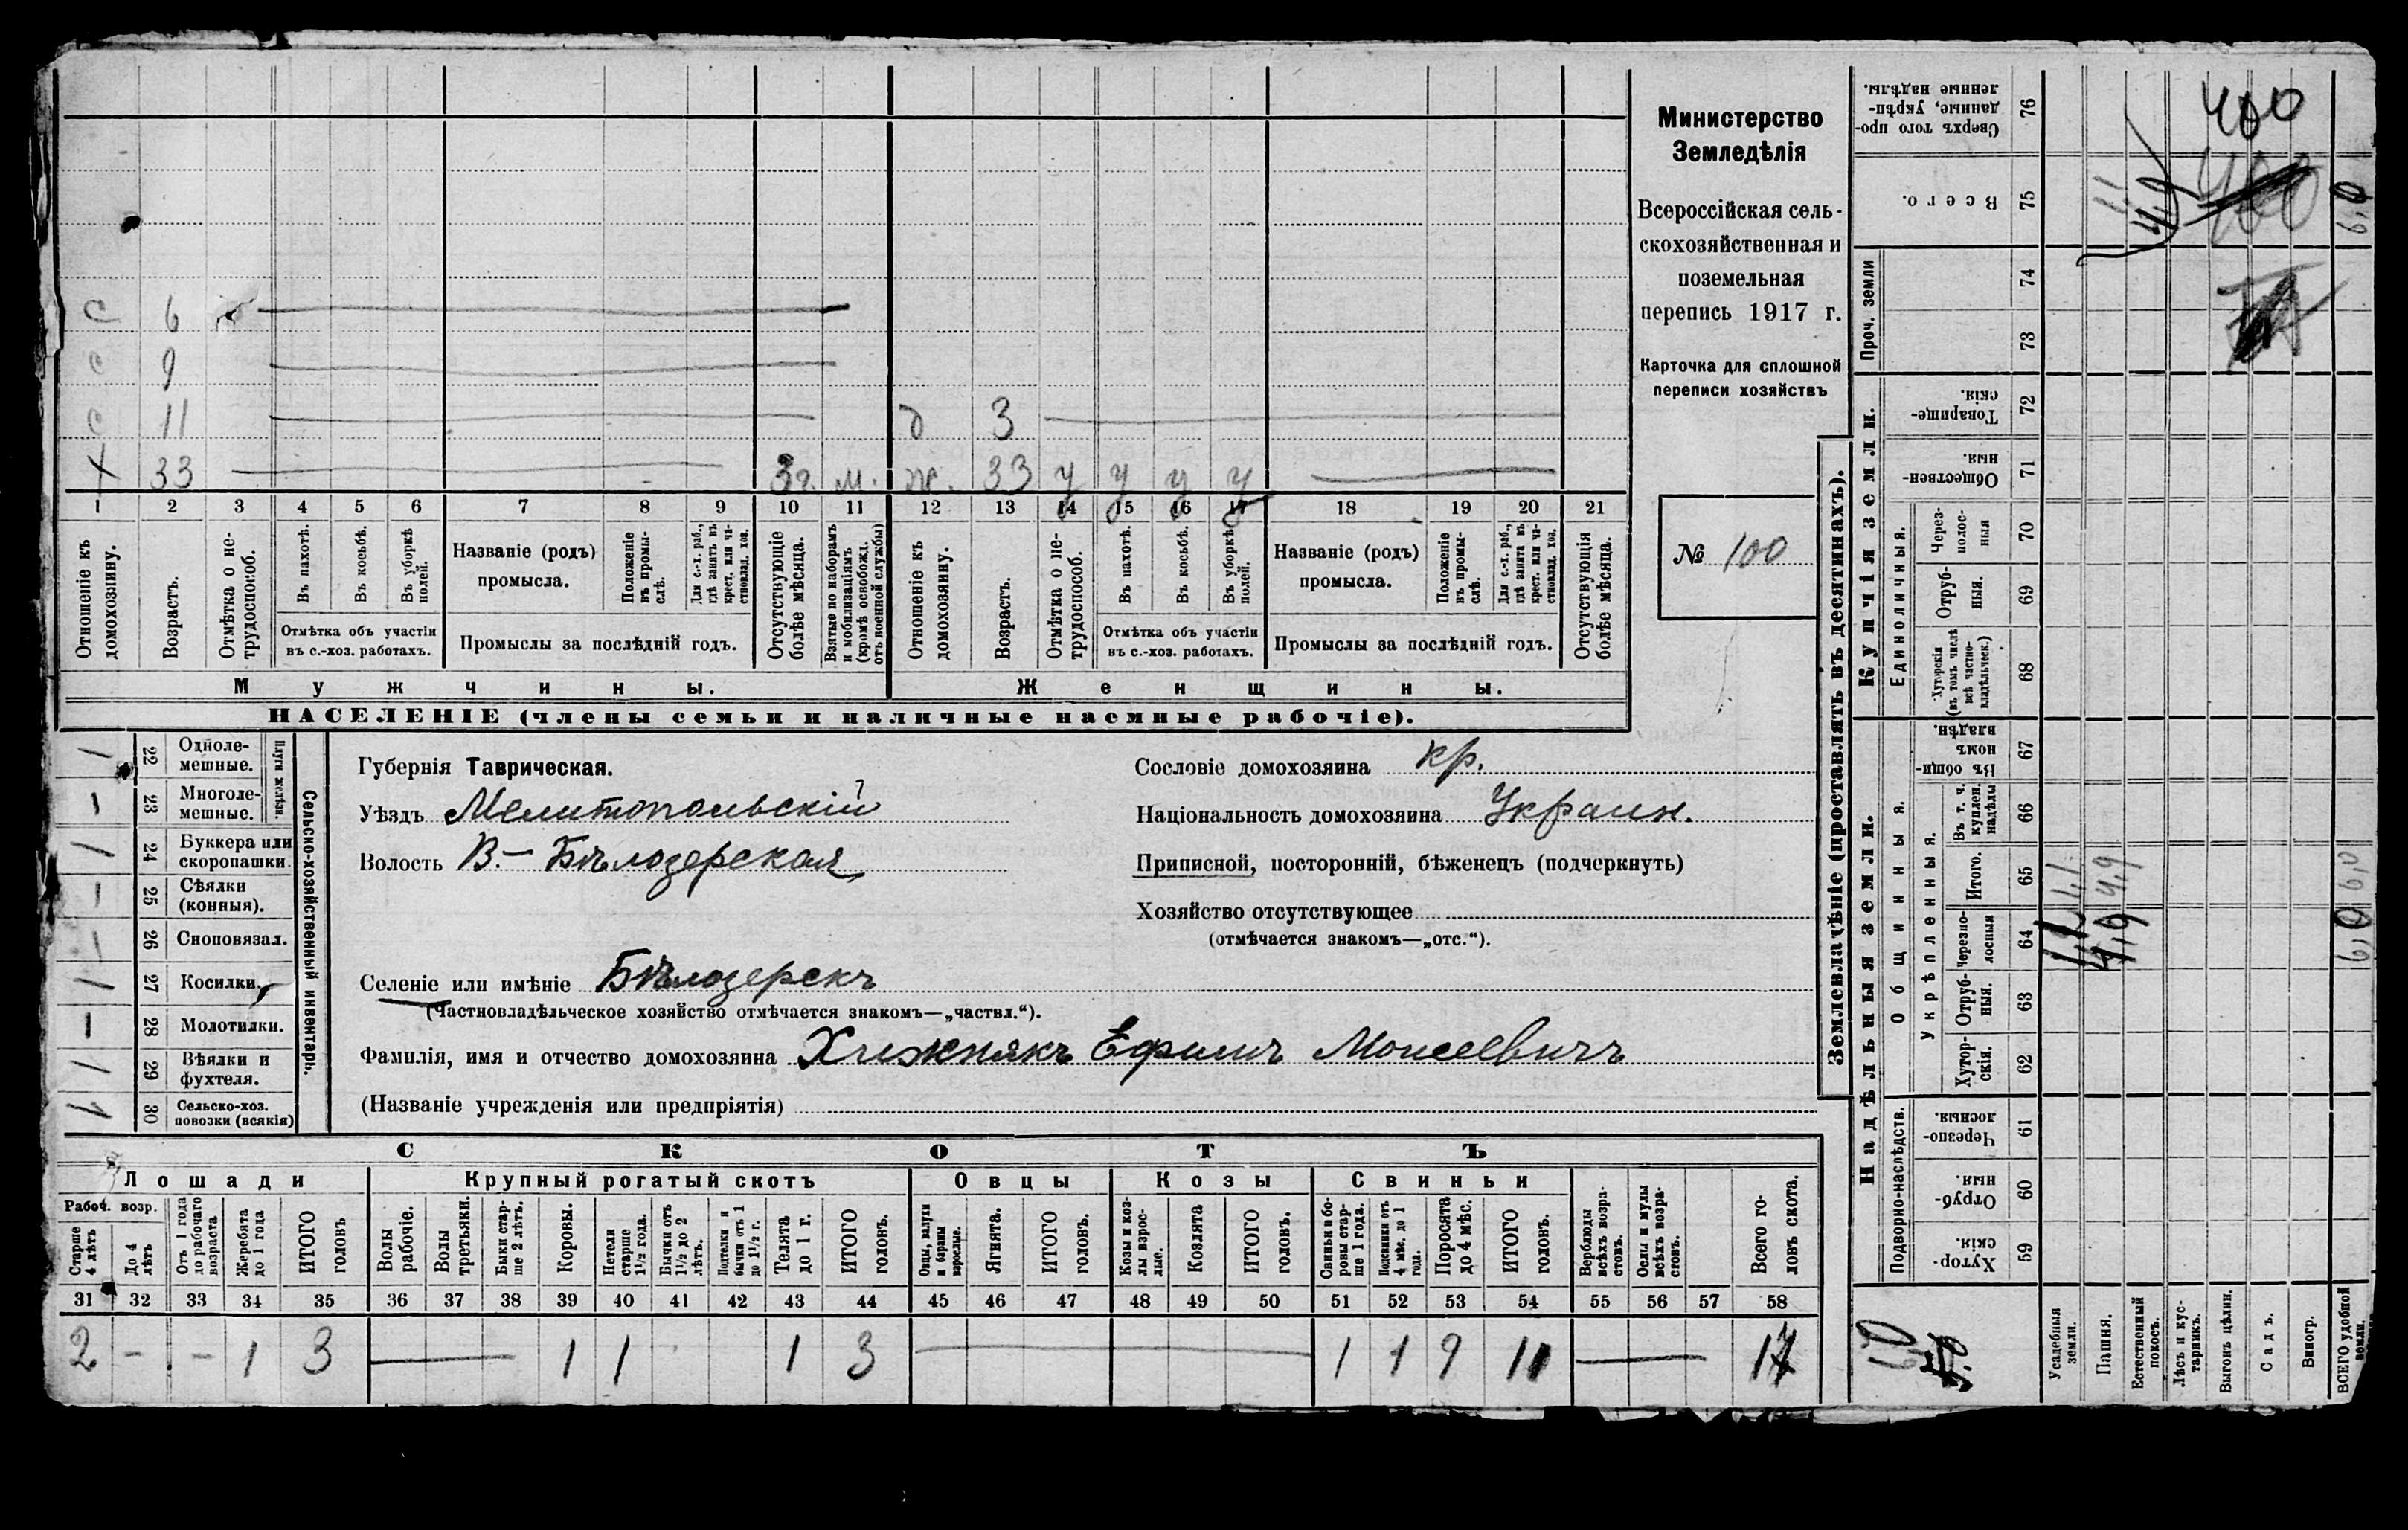 Министерство
Земледѣлія
Всероссійская сель-
скохозяйственная и
поземельная
перепись 1917 г.
Карточка для сплошной
переписи хозяйствъ
№ 100
с 6
с 9
с 11 д 3
х 33 3 г. м. ж. 33 у у у у
1 2 3 4 5 6 7 8 9 10 11 12 13 14 15 16 17 18 19 20 21
Отношеніе къ домохозяину.
Возрастъ.
Отмѣтка о не-трудоспособ.
Въ пахотѣ.
Въ косьбѣ.
Въ уборкѣ полей.
Отмѣтка объ участіи
въ с.-хоз. работахъ.
Названіе (родъ)
промысла.
Положеніе въ промы-слѣ.
Для с.-х. раб., гдѣ занятъ въ крест. или ча-стновлад. хоз.
Промыслы за послѣдній годъ.
Отсутствующіе болѣе мѣсяца.
Взятые по наборамъ и мобилизаціямъ (кромѣ освобожд. отъ военной службы)
Отношеніе къ домохозяину.
Возрастъ.
Отмѣтка о не-трудоспособ.
Въ пахотѣ.
Въ косьбѣ.
Въ уборкѣ полей.
Отмѣтка объ участіи
въ с.-хоз. работахъ.
Названіе (родъ)
промысла.
Положеніе въ промы-слѣ.
Для с.-х. раб., гдѣ занята въ крест. или ча-стновлад. хоз.
Промыслы за послѣдній годъ.
Отсутствующія болѣе мѣсяца.
Мужчины. Женщины.
НАСЕЛЕНІЕ (члены семьи и наличные наемные рабочіе).
Сельско-хозяйственный инвентарь.
Плуги желѣзн.
1 22 Одноле-мешные.
1 23 Многоле-мешные.
1 24 Буккера или скоропашки.
1 25 Сѣялки (конныя).
1 26 Сноповязал.
1 27 Косилки.
1 28 Молотилки.
1 29 Вѣялки и фухтеля.
1 30 Сельско-хоз. повозки (всякія)
Губернія Таврическая.
Уѣздъ Мелитопольскій
Волость В.-Бѣлозерская
Селеніе или имѣніе Бѣлозерскъ
(Частновладѣльческое хозяйство отмѣчается знакомъ—„частвл.“).
Фамилія, имя и отчество домохозяина Хижнякъ Ефимъ Моисеевичъ
(Названіе учрежденія или предпріятія)
Сословіе домохозяина кр.
Національность домохозяина Украин.
Приписной, посторонній, бѣженецъ (подчеркнуть)
Хозяйство отсутствующее
(отмѣчается знакомъ—„отс.“).
СКОТЪ
Лошади Крупный рогатый скотъ Овцы Козы Свиньи
Рабоч. возр.
Старше 4 лѣтъ
До 4 лѣтъ
Отъ 1 года до рабочаго возраста
Жеребята до 1 года
ИТОГО головъ
Волы рабочіе.
Волы третьяки.
Быки стар-ше 2 лѣтъ.
Коровы.
Нетели старше 1½ года.
Бычки отъ 1½ до 2 лѣтъ.
Подтелки и бычки отъ 1 до 1½ г.
Телята до 1 г.
ИТОГО головъ.
Овцы, валухи и бараны взрослые.
Ягнята.
ИТОГО головъ.
Козы и коз-лы взрос-лые.
Козлята
ИТОГО головъ.
Свиньи и бо-ровы стар-ше 1 года.
Подсвинки отъ 4 мѣс. до 1 года.
Поросята до 4 мѣс.
ИТОГО головъ.
Верблюды всѣхъ возра-стовъ.
Ослы и мулы всѣхъ возра-стовъ.
Всего го-ловъ скота.
31 32 33 34 35 36 37 38 39 40 41 42 43 44 45 46 47 48 49 50 51 52 53 54 55 56 57 58
2 - - 1 3 1 1 1 3 1 1 9 11 17
Землевладѣніе (проставлять въ десятинахъ).
Надѣльныя земли. Купчія земли. Проч. земли
Подворно-наслѣдств.
Общинныя.
Укрѣпленныя.
Единоличныя.
Хутор-скія. 59
Отруб-ныя. 60
Черезпо-лосныя. 61
Хутор-скія. 62
Отруб-ныя. 63
Черезпо-лосныя 64
Итого. 65
Въ т. ч. куплен. надѣлы 66
Въ общи-номъ владѣн. 67
Хуторскія (въ томъ числѣ всѣ частно-владѣльческ.) 68
Отруб-ныя. 69
Через-полос-ныя 70
Обществен-ныя. 71
Товарище-скія. 72
73
74
Всего. 75
Сверхъ того про-данные, укрѣп-ленные надѣлы. 76
Усадебныя земли.
Пашня.
Естественный покосъ.
Лѣсъ и кус-тарникъ.
Выгонъ цѣлин.
Садъ.
Виногр.
ВСЕГО удобной земли.
1,1 4,9 6,0
4,9 400 6,0
400